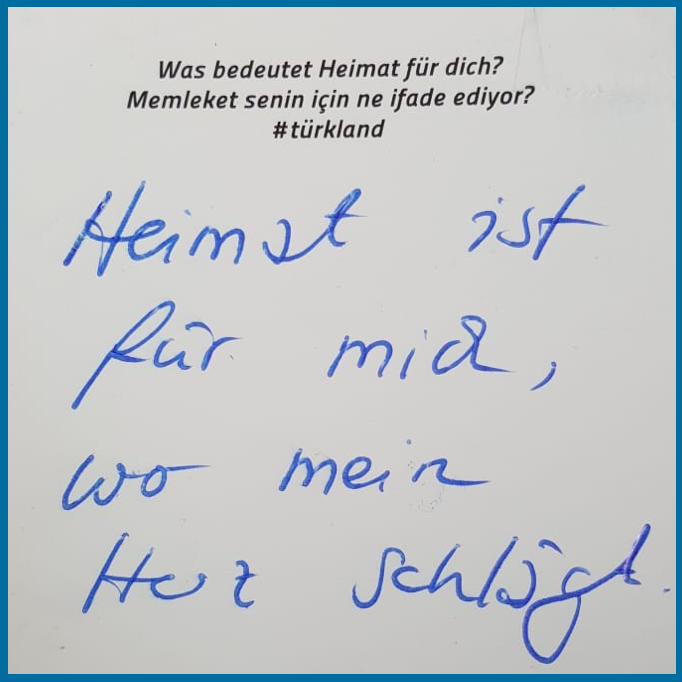 Was bedeutet Heimat für dich?
Memleket senin için ne ifade ediyor?
#türkland
Heimat ist
für mich,
wo mein
Herz schlägt.